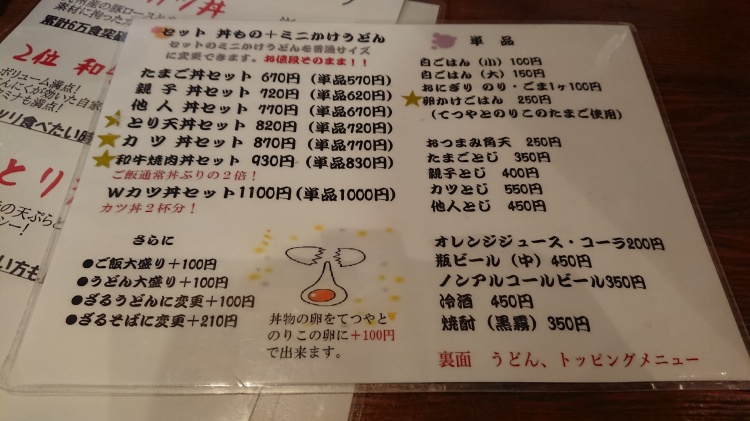 カツ丼
素材に拘った
累計6万食突破
2位
ボリューム満点!
にんにくが効いた自家
タミナも満点!
とり
の天ぷらと
セット 丼もの+ミニかけうどん
セットのミニかけうどんを普通サイズ
に変更できます。お値段そのまま!!
たまご丼セット 670円 (単品570円)
親子 丼セット 720円 (単品620円)
他人 丼セット 770円 (単品670円)
とり天丼セット 820円 (単品720円)
カツ 丼セット 870円 (単品770円)
和牛焼肉丼セット 930円 (単品830円)
ご飯通常丼ぶりの2倍!
Wカツ丼セット1100円(単品1000円)
カツ丼2杯分!
さらに
●ご飯大盛り+100円
●うどん大盛り+100円
●ざるうどんに変更+100円
●ざるそばに変更+210円
丼物の卵をてつやと
のりこの卵に+100円
で出来ます。
単品
白ごはん (小) 100円
白ごはん (大) 150円
おにぎり のり・ごま1ヶ100円
卵かけごはん 250円
(てつやとのりこのたまご使用)
おつまみ角天 250円
たまごとじ 350円
親子とじ 400円
カツとじ 550円
他人とじ 450円
オレンジジュース・コーラ200円
瓶ビール (中) 450円
ノンアルコールビール350円
冷酒 450円
焼酎 (黒霧) 350円
裏面 うどん、トッピングメニュー